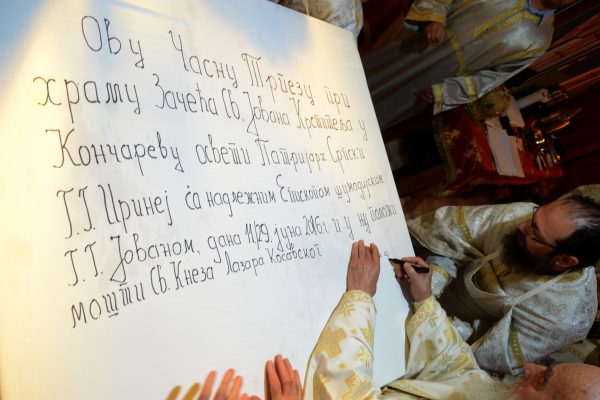 Ову Часну Трпезу при
храму Зачећа Св. Јована Крститеља у
Кончареву освети Патријарх Српски
Г.Г. Иринеј са надлежним Епископом шумадијским
Г.Г. Јованом, дана 11/29. јуна 2016. г. и у њу положи
мошти Св. Кнеза Лазара Косовског